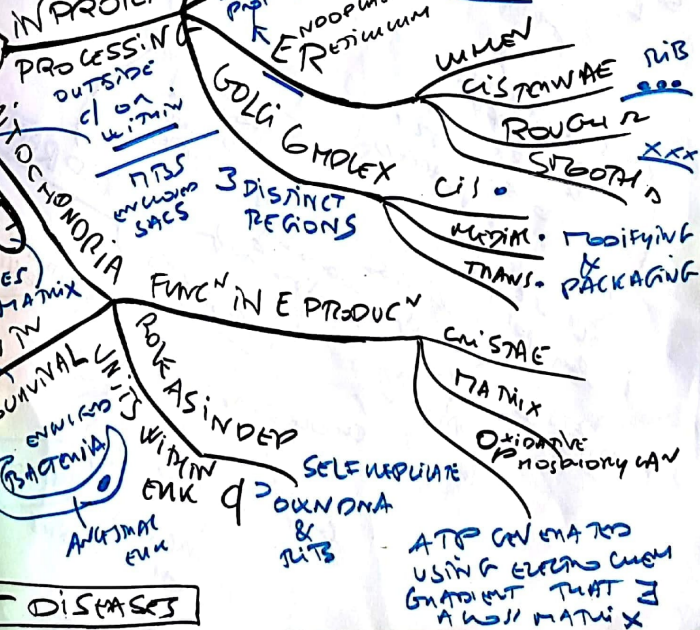 IN PROTEIN
PROCESSING
OUTSIDE
c/ OR
WITHIN
MBS
ENCLOSED
SACS
ENDOPLASMIC
RETICULUM
LUMEN
CISTERNAE
RIB
ROUGH
SMOOTH
XXX
GOLGI COMPLEX
3 DISTINCT
REGIONS
CIS
MEDIAL
TRANS
MODIFYING
&
PACKAGING
MITOCHONDRIA
MATRIX
IN
FUNCᴺ IN E PRODUCᴺ
CRISTAE
MATRIX
OXIDATIVE
PHOSPHORYLAN
ATP GENERATED
USING ELECTROCHEM
GRADIENT THAT ∃
ACROSS MATRIX
ROLE AS INDEP
UNITS WITHIN
EUK
SELF REPLICATE
OWN DNA
&
RIB
SURVIVAL
ENGULFED
BACTERIA
ANCESTRAL
EUK
DISEASES